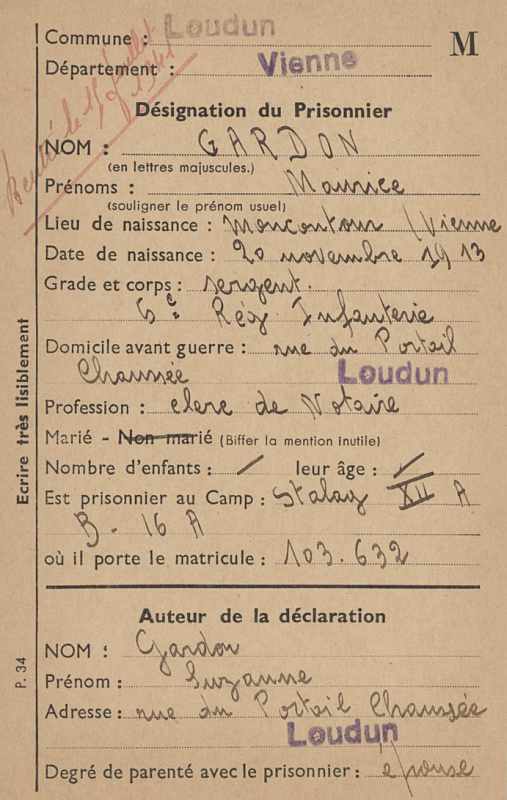 Commune : Loudun
M
Département : Vienne
Désignation du Prisonnier
NOM : GARDON
(en lettres majuscules.)
Prénoms : Maurice
(souligner le prénom usuel)
Lieu de naissance : Moncontour (Vienne
Date de naissance : 20 novembre 1913
Grade et corps : sergent.
6e Rég Infanterie
Domicile avant guerre : rue du Portail
Chaussée Loudun
Profession : clerc de Notaire
Marié - Non marié (Biffer la mention inutile)
Nombre d'enfants : / leur âge : /
Est prisonnier au Camp : Stalag XII A
B. 16 A
où il porte le matricule : 103.632
Auteur de la déclaration
NOM : Gardon
Prénom : Suzanne
Adresse : rue du Portail Chaussée
Loudun
Degré de parenté avec le prisonnier : épouse
Ecrire très lisiblement
P. 34
le 15 juillet
1941